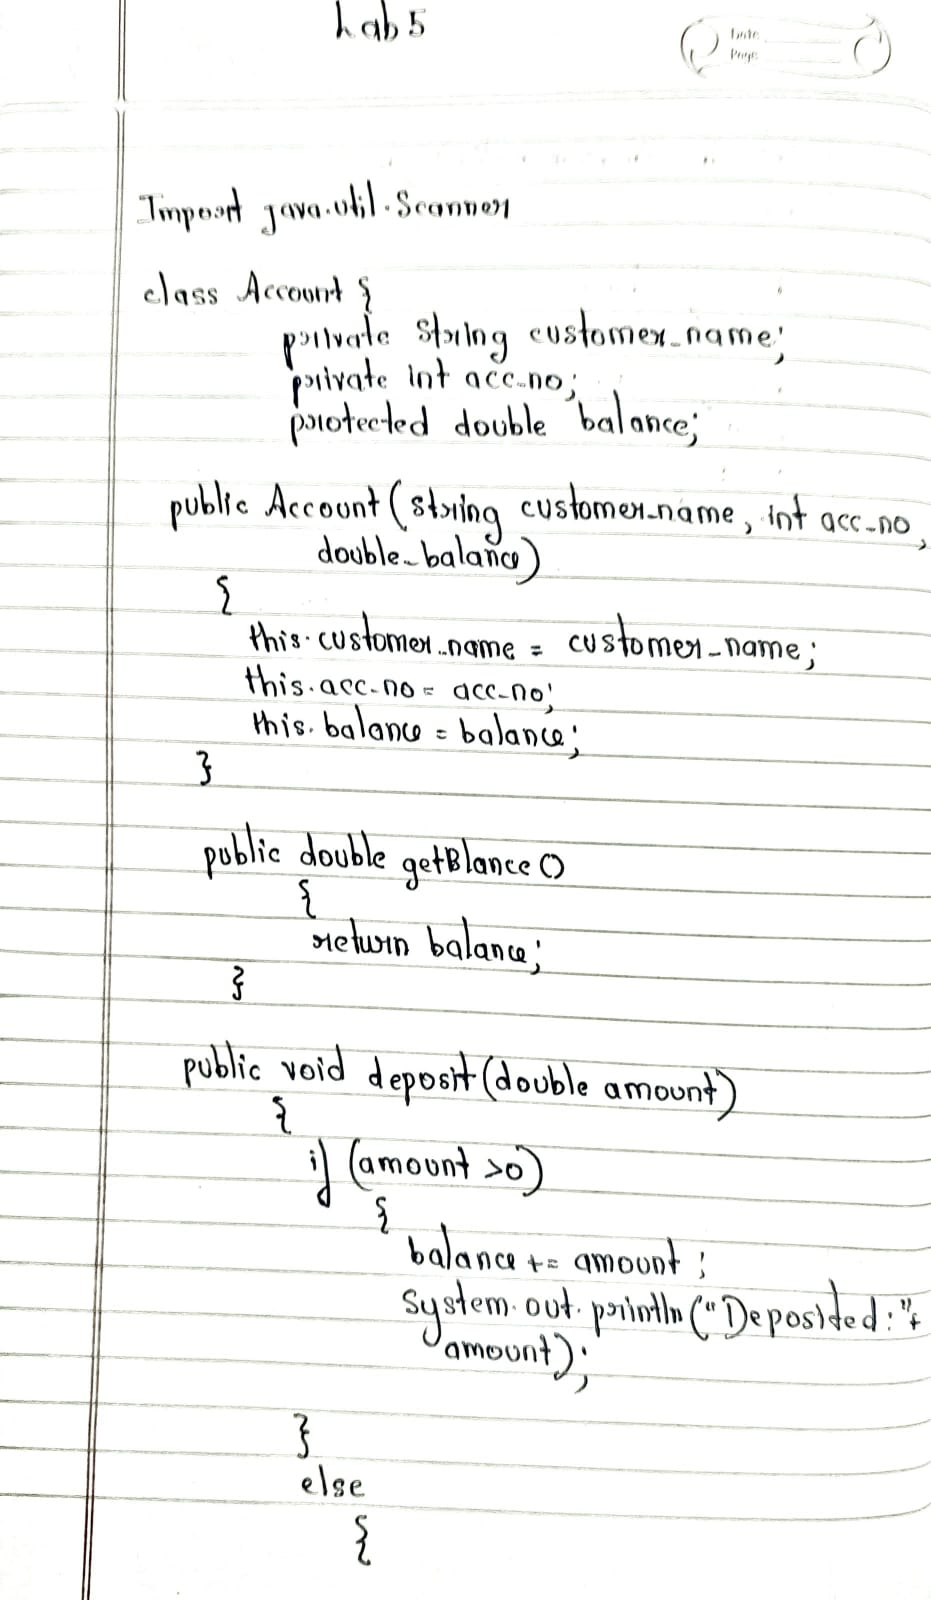 Lab 5
Date
Page
Import java.util.Scanner
class Account {
private String customer_name;
private int acc_no;
protected double balance;
public Account (string customer_name, int acc_no,
double_balance)
{
this.customer_name = customer_name;
this.acc_no = acc_no;
this.balance = balance;
}
public double getBlance ()
{
return balance;
}
public void deposit (double amount)
{
if (amount >0)
{
balance += amount ;
System.out.println ("Deposited:"+
amount);
}
else
{